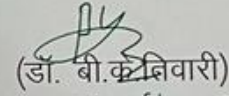 (डॉ. बी.के. तिवारी)